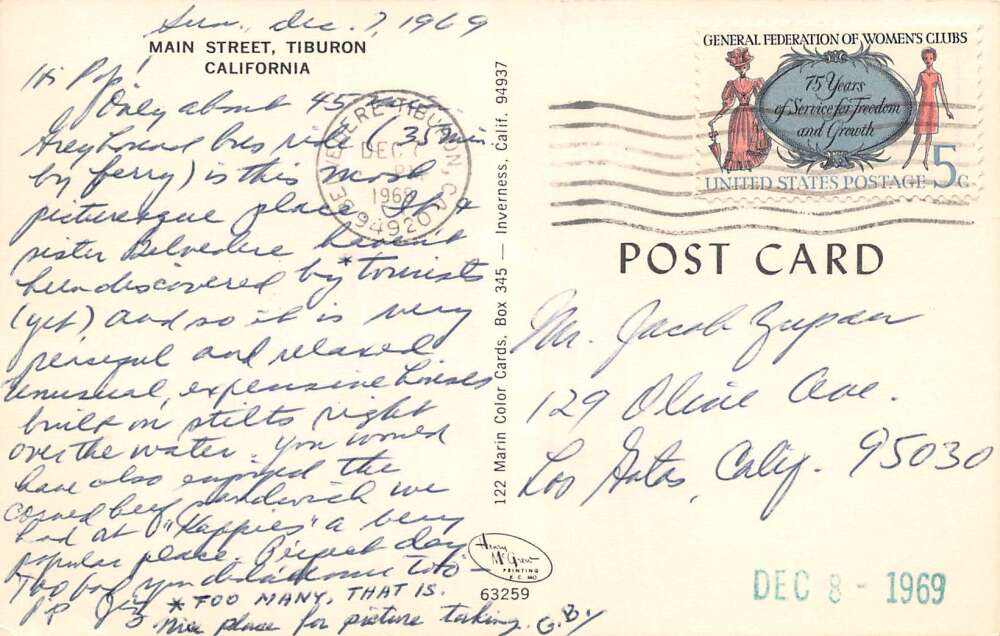 Sun., Dec. 7, 1969
MAIN STREET, TIBURON
CALIFORNIA
Hi Pop!
Only about 45 min
Greyhound bus ride (35 min.
by ferry) is this most
picturesque place. It &
sister Belvedere haven't
been discovered by *tourists
(yet) and so it is very
peaceful and relaxed.
Unusual, expensive houses
built on stilts right
over the water. You would
have also enjoyed the
corned beef sandwich we
had at "Kappies" a very
popular place. Perfect day.
Too bad you didn't come too -
* TOO MANY, THAT IS.
Nice place for picture taking. G. By
BELVEDERE-TIBURON, CA
DEC 7
1969
94920
122 Marin Color Cards, Box 345 — Inverness, Calif. 94937
GENERAL FEDERATION OF WOMEN'S CLUBS
75 Years
of Service for Freedom
and Growth
UNITED STATES POSTAGE 5c
POST CARD
Mr. Jacob Zupan
129 Olive Ave.
Los Gatos, Calif. 95030
Henry
McGrew
PRINTING
K.C. MO
63259
DEC 8 - 1969